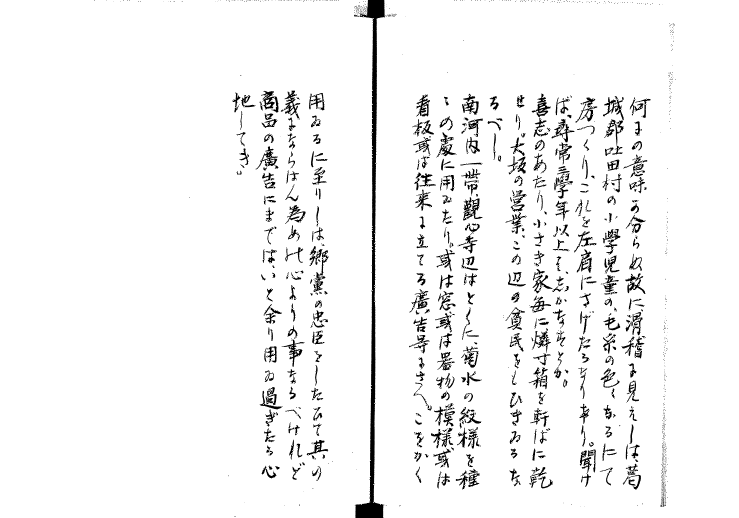 何まの意味の分らぬ故に滑稽に見えしは、葛
城郡吐田村の小學児童の、毛糸の色〻なるにて
房つくり、これを左肩にさげたるなりあり。聞け
ば、尋常三學年以上そ、しかなすとか。
喜志のあたり、小さき家毎に燐寸箱を軒ばに乾
せり。大坂の営業、この辺の貧民をもひきゐるな
るべし。
南河内一帯、観心寺辺はとくに、菊水の紋様を種
〻の處に用ゐたり。或は窓或は器物の模様或は
看板或は往来に立てる廣告等にさへ。こをかく
用ゐるに至りしは、郷黨の忠臣をしたひて其の
義にならはん為めの心よりの事なるべけれど
商品の廣告にまでは、いと余り用ゐ過ぎたる心
地してき。